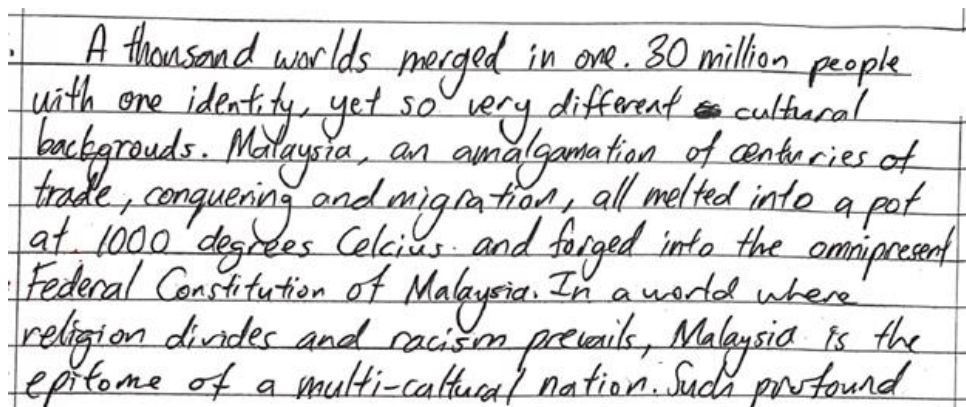 A thousand worlds merged in one. 30 million people
with one identity, yet so very different cultural
backgrouds. Malaysia, an amalgamation of centuries of
trade, conquering and migration, all melted into a pot
at 1000 degrees Celcius and forged into the omnipresent
Federal Constitution of Malaysia. In a world where
religion divides and racism prevails, Malaysia is the
epitome of a multi-cultural nation. Such profound